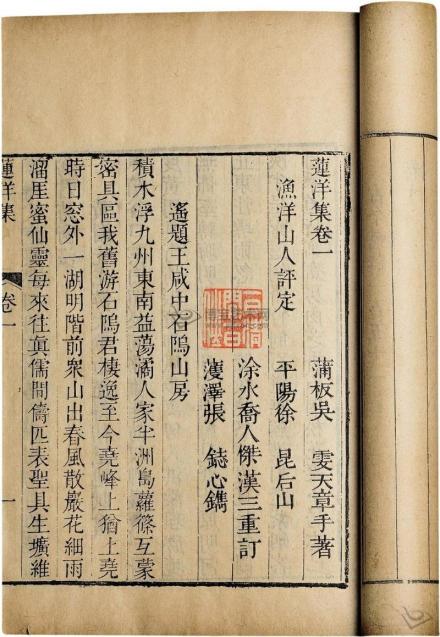 蓮洋集卷一 蒲板吳 雯天章手著
漁洋山人評定 平陽徐 昆后山
涂水喬人傑漢三重訂
濩澤張 鋕心鐫
遙題王咸中石塢山房
積木浮九州東南益蕩潏人家半洲島蘿篠互蒙
密具區我舊游石塢君棲逸至今堯峰上猶上堯
時日窓外一湖明階前衆山出春風散巖花細雨
溜厓蜜仙靈每來往眞儒問儔匹表聖具生壙維
蓮洋集 卷一 一